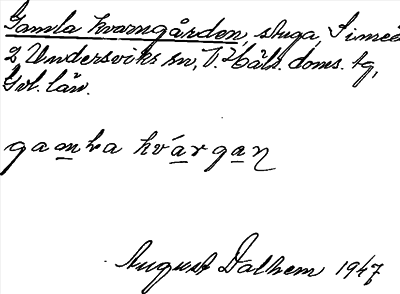 Gamla kvarngården, stuga, Simeå
2 Undersviks sn, V. Häls. doms. tg,
Gvl. län.
gamla kvárgaṇ
August Dalhem 1947